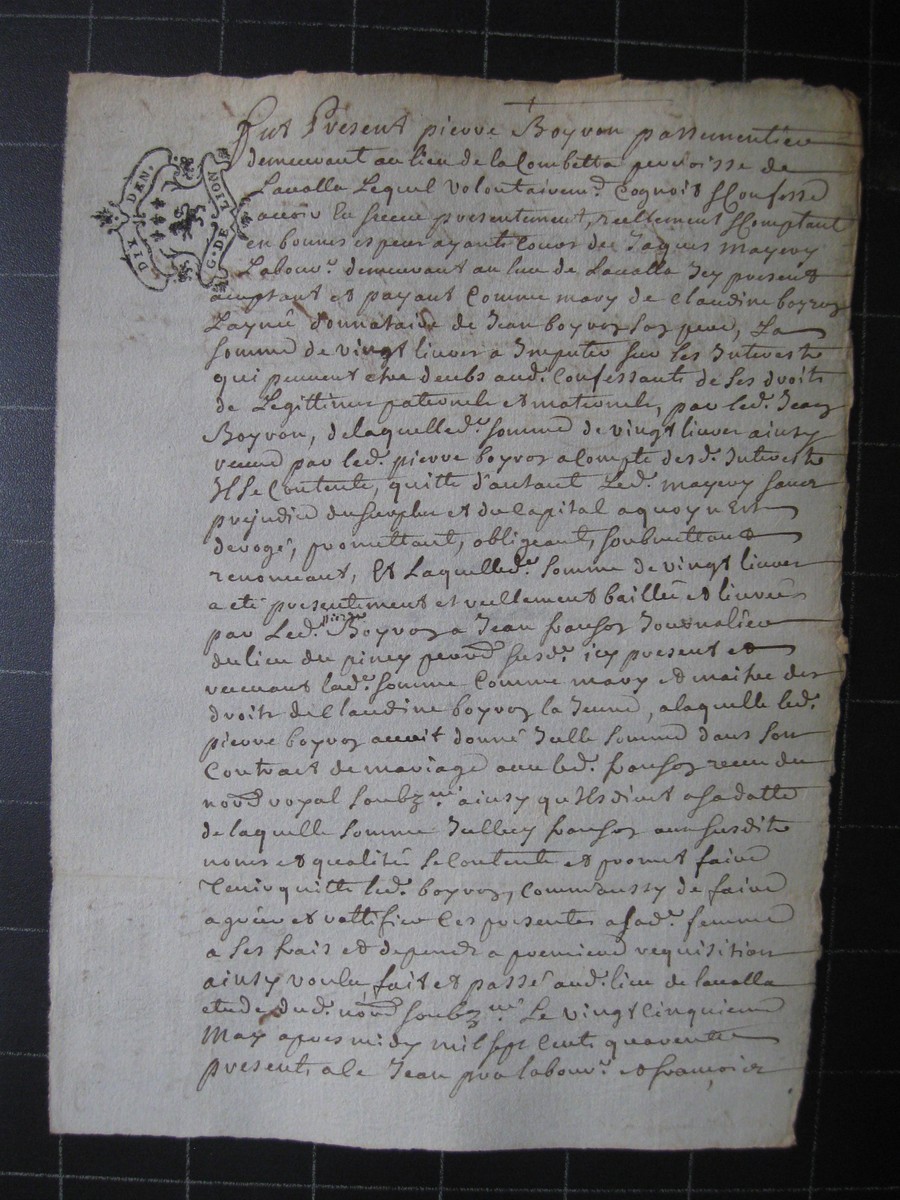 DIX DEN.
G. DE LION
Fut Présent pierre Boyron passementier
demeurant au lieu de la Combetta perroisse de
Lavalla Lequel volontairemt. Cognoit & Confesse
avoir Eu & receu presentement, reellement & Comptant
en bonnes especes ayants Cours de Jaques mayery
Labourr. demeurant au lieu de Lavalla Icy present
acceptant et payant Comme mary de Claudine boyron
L'aynée donnataire de Jean boyron son pere, La
somme de vingt livres a Imputer sur les Interests
qui peuvent etre deubs aud. Confessant de ses droits
de Legittime paternele et maternele, par led. Jean
Boyron, de laquelle de. somme de vingt livres ainsy
receue par led. pierre boyron a Compte desd. Interests
Il se Contente, quitte d'autant Led. mayery sans
prejudice du surplus et du Capital a quoy n'Est
derogé, promettant, obligeant, soubmettant
renonceant, Et Laquelle de. somme de vingt livres
a eté presentement et reellement baillée et livrée
par Led. pierre Boyron a Jean franson Journalier
du lieu du piney perroisse susd. icy present et
recevant lad. somme Comme mary et maitre des
droits de Claudine boyron la Jeune, a laquelle led.
pierre boyron avoit donné Icelle somme dans son
Contract de mariage avec led. franson receu du
nore. royal soubzné. ainsy qu'Ils dirent a sa datte
de laquelle somme Icelluy franson aux susdits
noms et qualités se Contente et promet faire
Tenir quitte led. boyron, Comm'aussy de faire
agréer et rattifier Ces presentes a sad. femme
a ses frais et depends a premiere requisition
ainsy voulu, fait et passé aud. lieu de lavalla
etude dud. nore. soubzné. Le vingt Cinquieme
May apres midy mil sept Cents quarente
presents a Ce Jean pra labourr. et françois